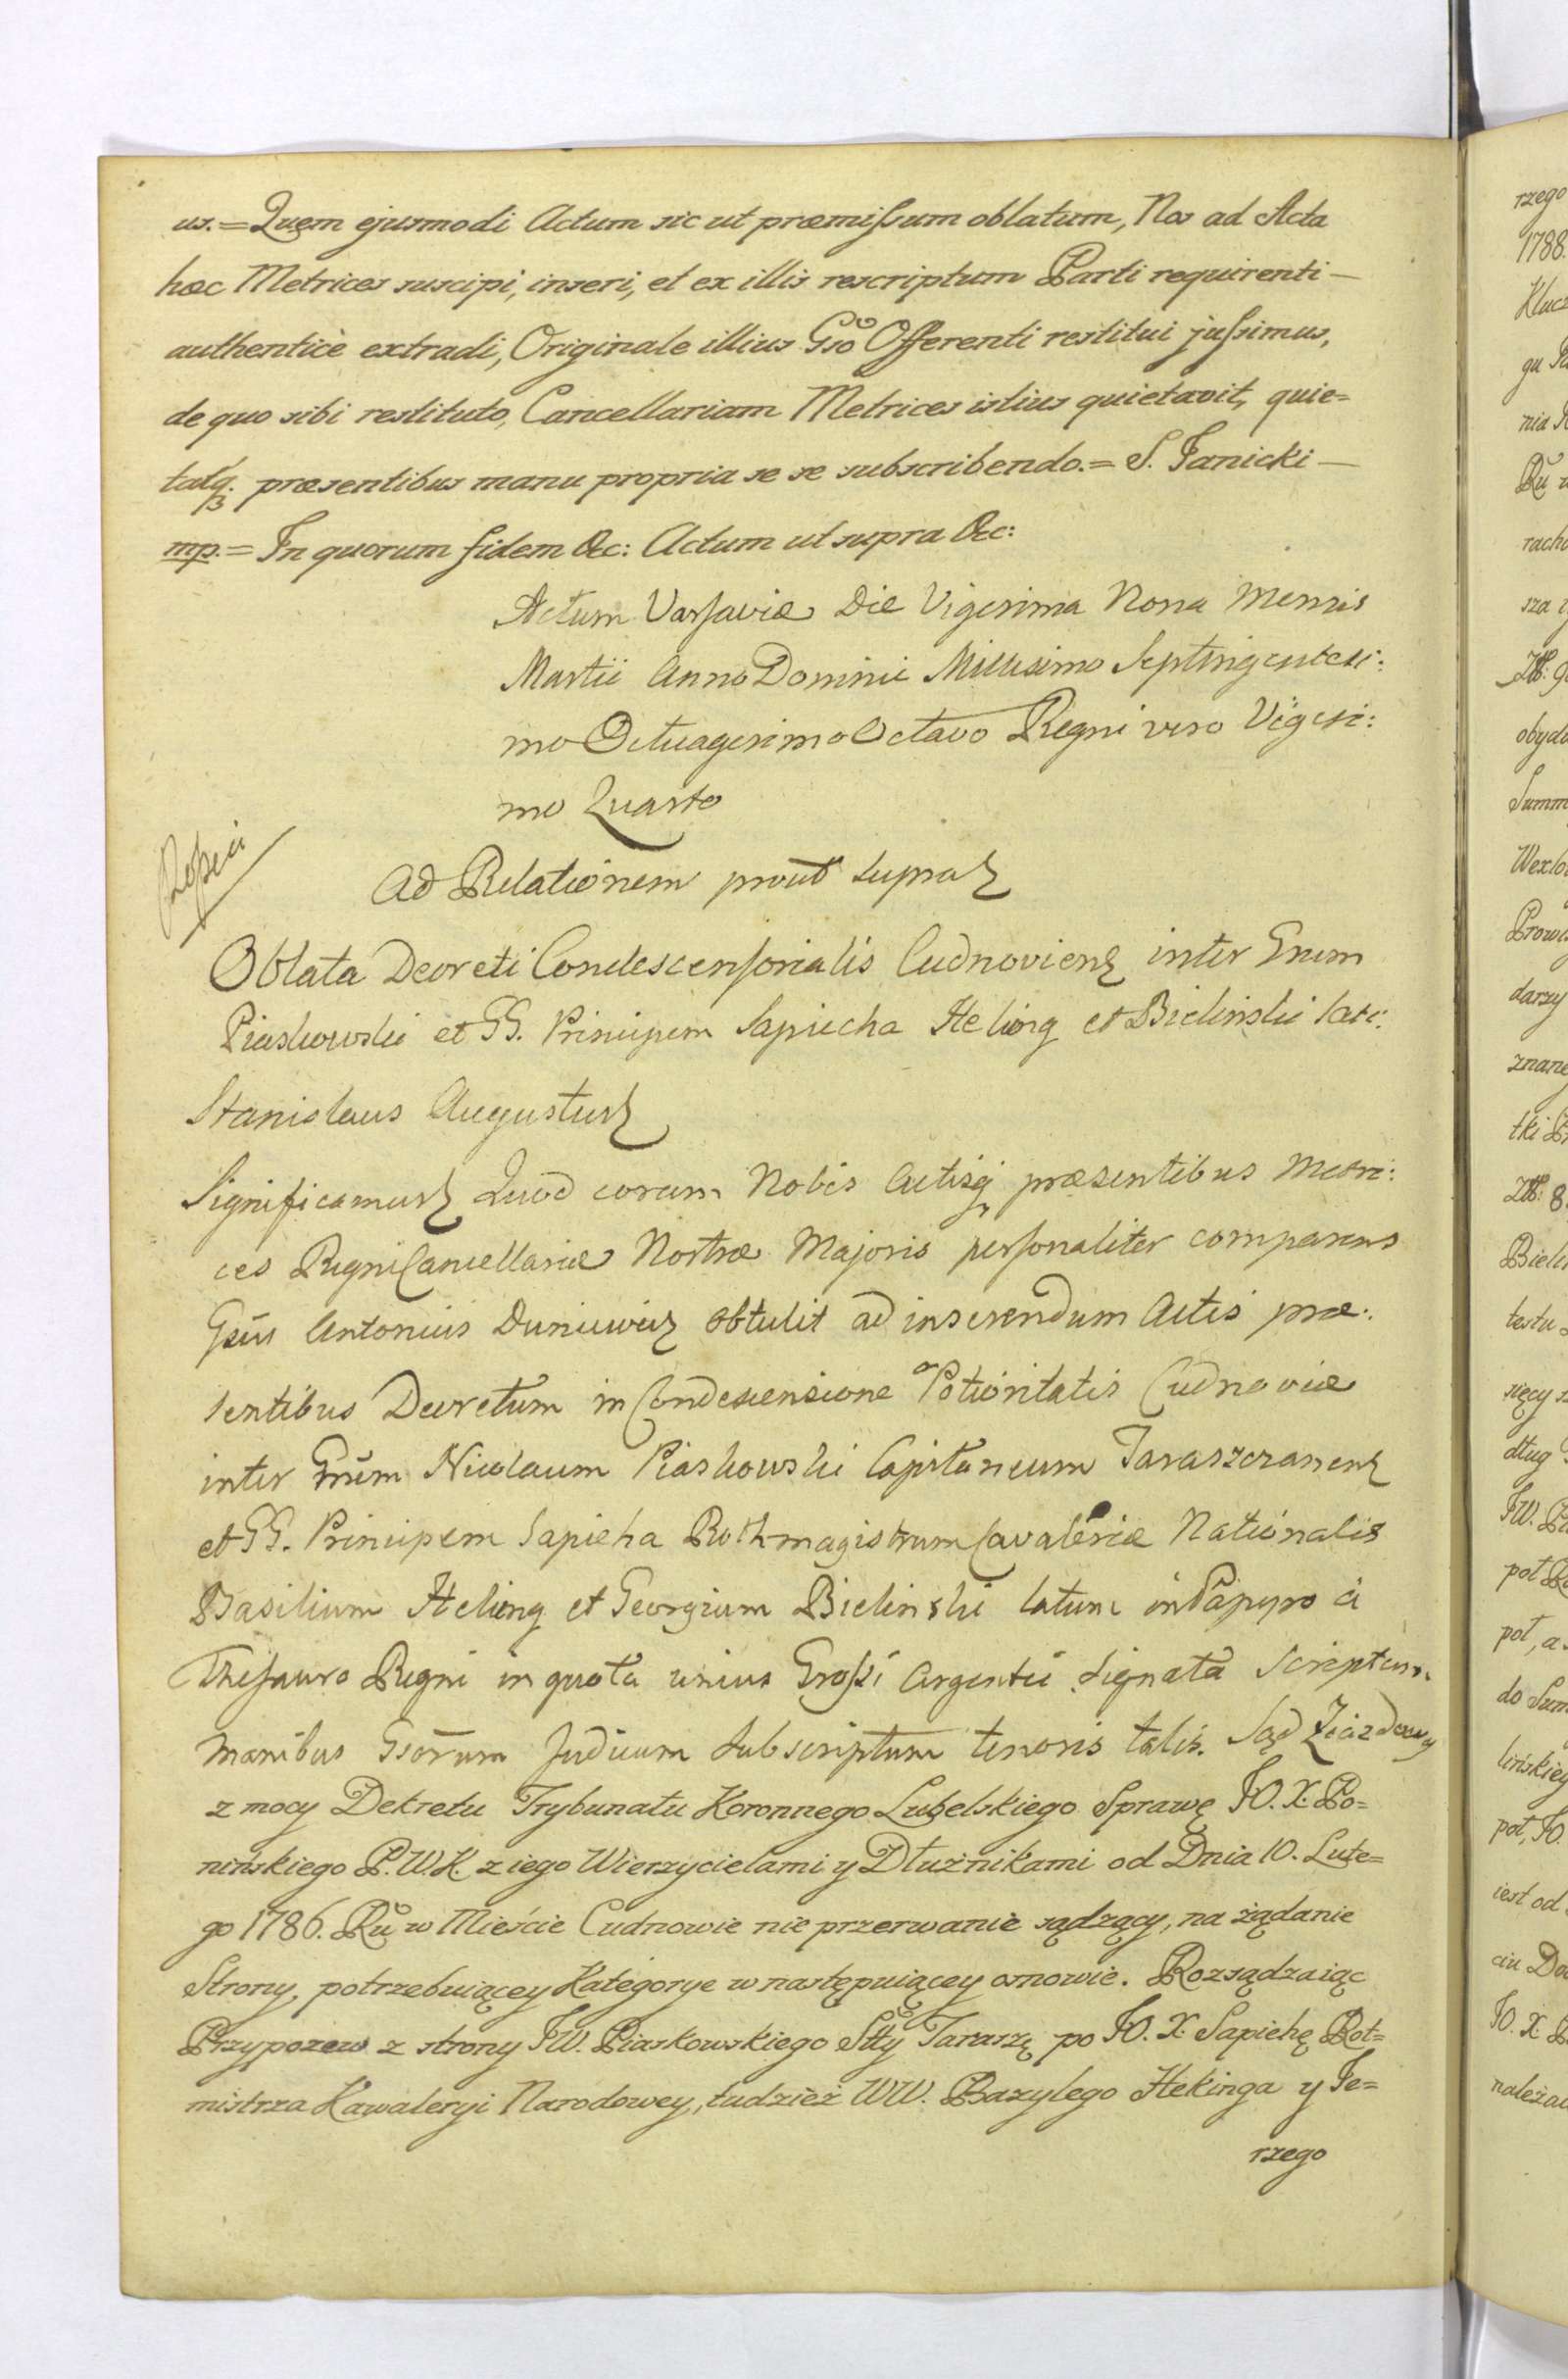 us. = Quem ejusmodi Actum sic ut præmissum oblatum, Nos ad Acta
hæc Metrices suscipi, inseri, et ex illis rescriptum Parti requirenti —
authenticè extradi, Originale illius Gso Offerenti restitui jussimus,
de quo sibi restituto, Cancellariam Metrices istius quietavit, quie=
tatq. præsentibus manu propria se se subscribendo. = S. Janicki —
mp. = In quorum fidem &c: Actum ut supra &c:
Actum Varsaviæ Die Vigesima Nona Mensis
Martii Anno Domini Millesimo Septingentesi:
mo Octuagesimo Octavo Regni vero Vigesi:
mo Quarto
Ad Relationem prout supra
Oblata Decreti Condescensorialis Cudnoviens inter Gnum
Piaskowski et GG. Principem Sapiecha Heking et Bielinski lati:
Stanislaus Augustus
Significamus Quod coram Nobis Actisq præsentibus Metri:
ces Regni Cancellariæ Nostræ Majoris personaliter comparens
Gsus Antonius Duniewicz obtulit ad inserendum Actis præ:
sentibus Decretum in Condescensione Potioritatis Cudnoviæ
inter Gnum Nicolaum Piaskowski Capitaneum Taraszczanens
et GG. Principem Sapieha Rothmagistrum Cavaleriæ Nationalis
Basilium Heking et Georgium Bielinski latum in Papyro à
Thesauro Regni in quota unius Grossi Argentei signata Scriptum
manibus Gsorum Judicum subscriptum tenoris talis. Sąd Ziazdowy
z mocy Dekretu Trybunatu Koronnego Lubelskiego Sprawę JO. X. Po=
nińskiego P.W.K z iego Wierzycielami y Dłużnikami od Dnia 10. Lute=
go 1786. Ru w Mieście Cudnowie nie przerwanie sądzący, na żądanie
Strony, potrzebuiącey Kategorye w następuiącey osnowie. Rozsądzaiąc
Przypozew z strony JW. Piaskowskiego Stty Taraszę po JO. X. Sapiehę Rot=
mistrza Kawaleryi Narodowey, tudzież WW. Bazylego Hekinga y Je=
rzego
rzego
1788.